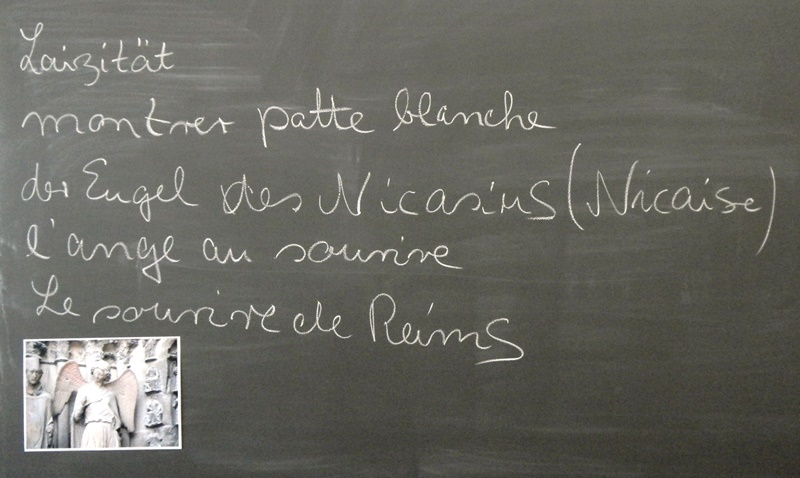 Laizität
montrer patte blanche
der Engel des Nicasius (Nicaise)
l'ange au sourire
Le sourire de Reims